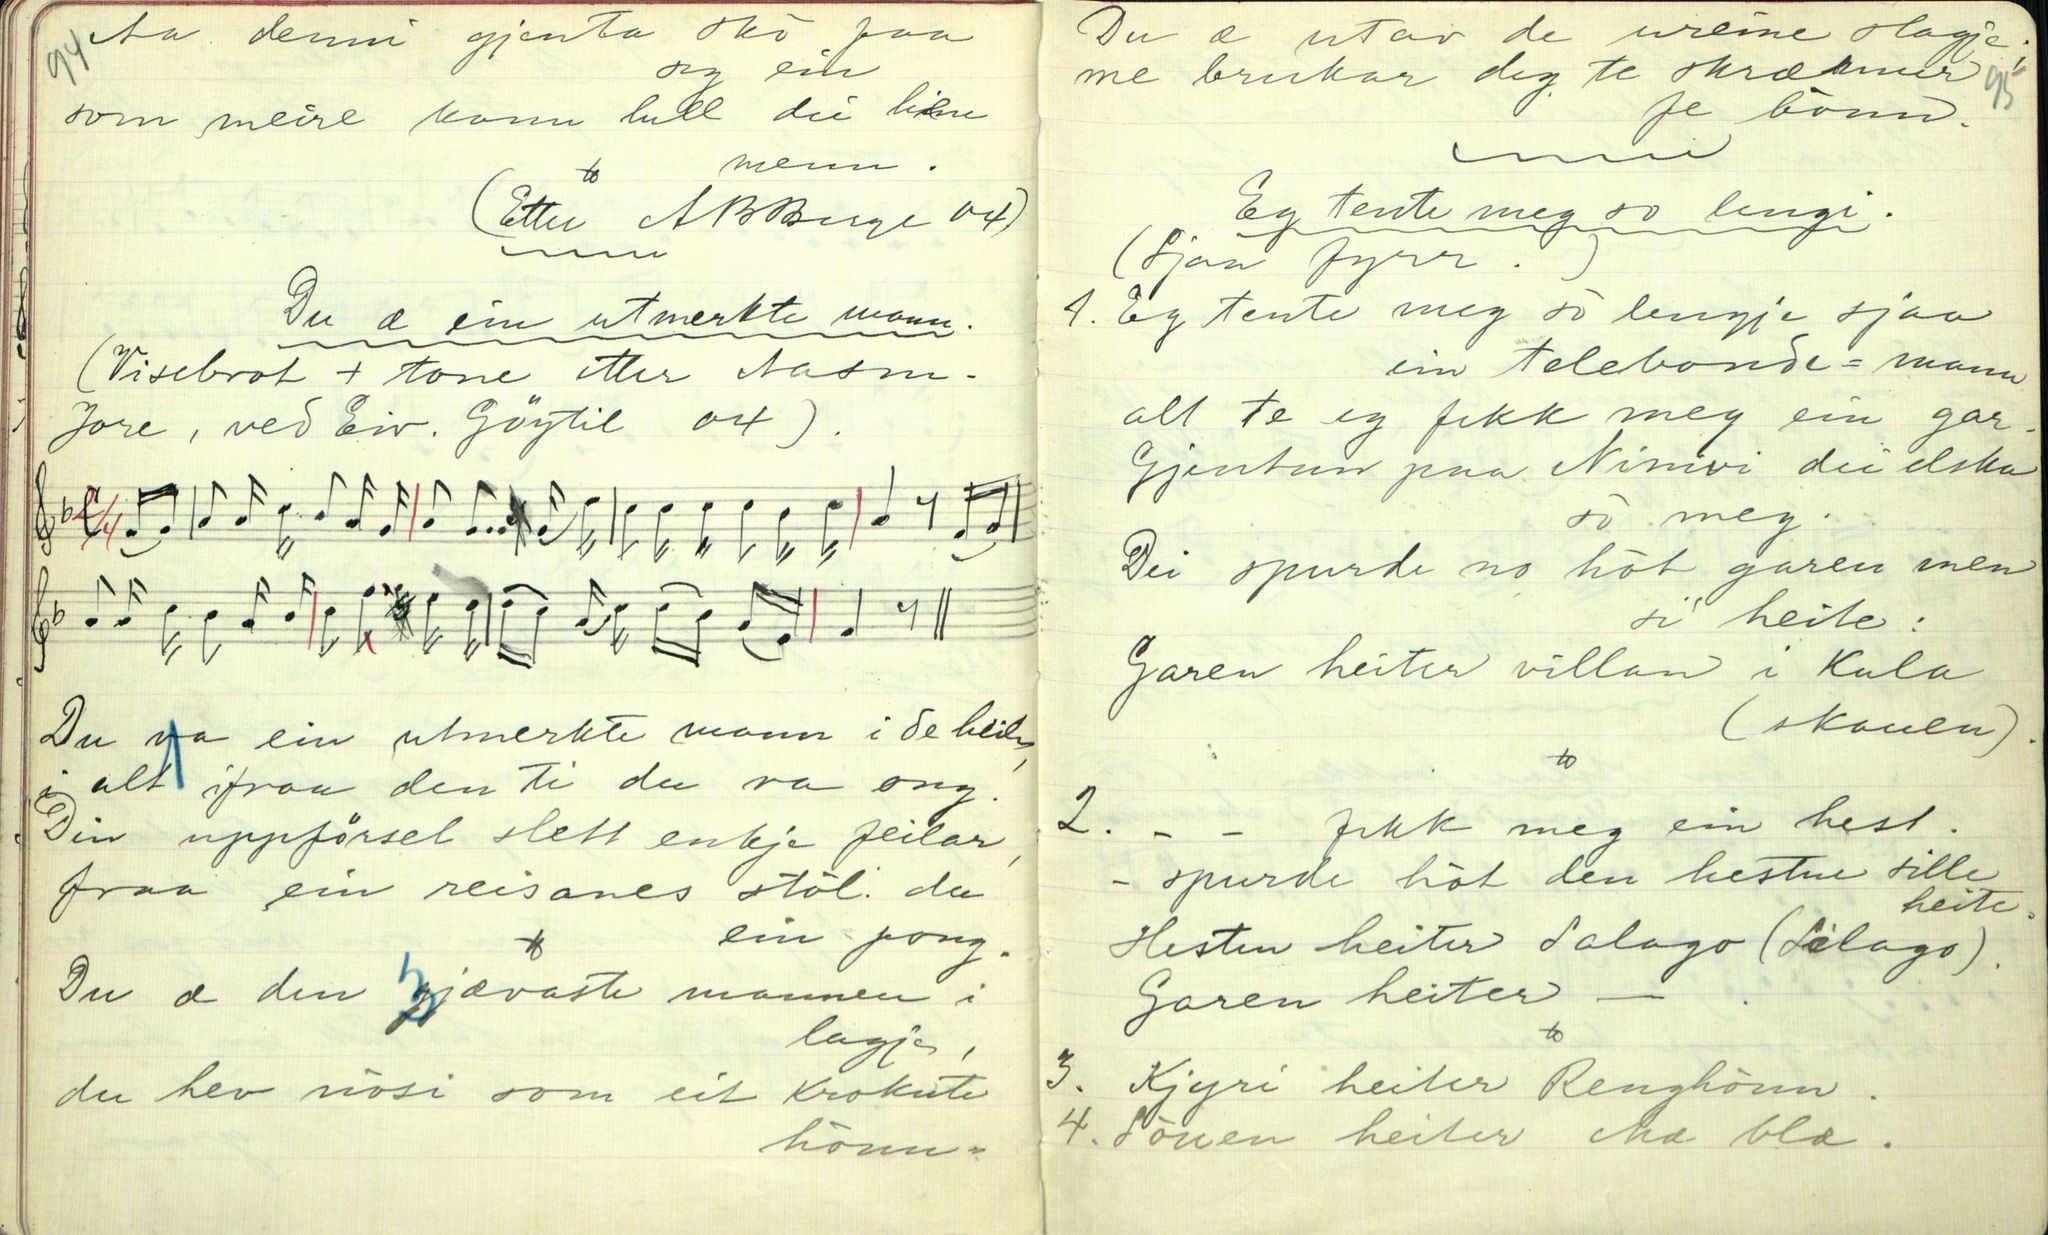 94
Aa denni gjenta sko faa
seg ein
som meire kann lull dei hine
menn.
(Etter ABBerge 04)
Du æ ein utmerkte mann.
(Visebrot + tone etter Aasne-
Jore, ved Eiv. Göytil 04).
2/4
Du va ein utmerkte mann i de heile,
1
i alt ifraa den ti du va ong.
Din uppförsel slett enkje feilar,
fraa ein reisanes stöl du
ein pong.
Du æ den gjævaste mannen i
3
lagje,
du hev nosi som eit krokute
hönn-
Du æ utav de ureine slagje;
95
me brukar deg te skræmur
fe bönn.
Eg tente meg so lengi.
(Sjaa fyrr.)
1. Eg tente meg so lengje sjaa
ein telebonde-mann
alt te eg fekk meg ein gar.
Gjentun paa Ninivi dei elska
so meg.
Dei spurde no hot garen men
si heite:
Garen heiter villan i Kula
(skauen).
2. - - fekk meg ein hest.
- spurde hot den hestne sille
heite.
Hesten heiter Salago (Silago).
Garen heiter —.
3. Kjyri heiter Renghönn.
4. Souen heiter Mæ blæ.